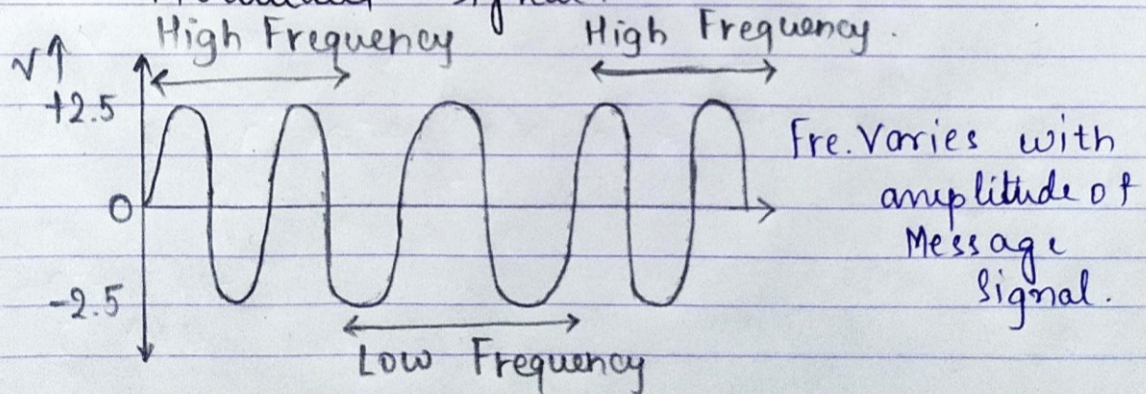 signal
High Frequency
High Frequency.
V↑
+2.5
0
-2.5
Low Frequency
Fre. Varies with
amplitude of
Message
Signal.